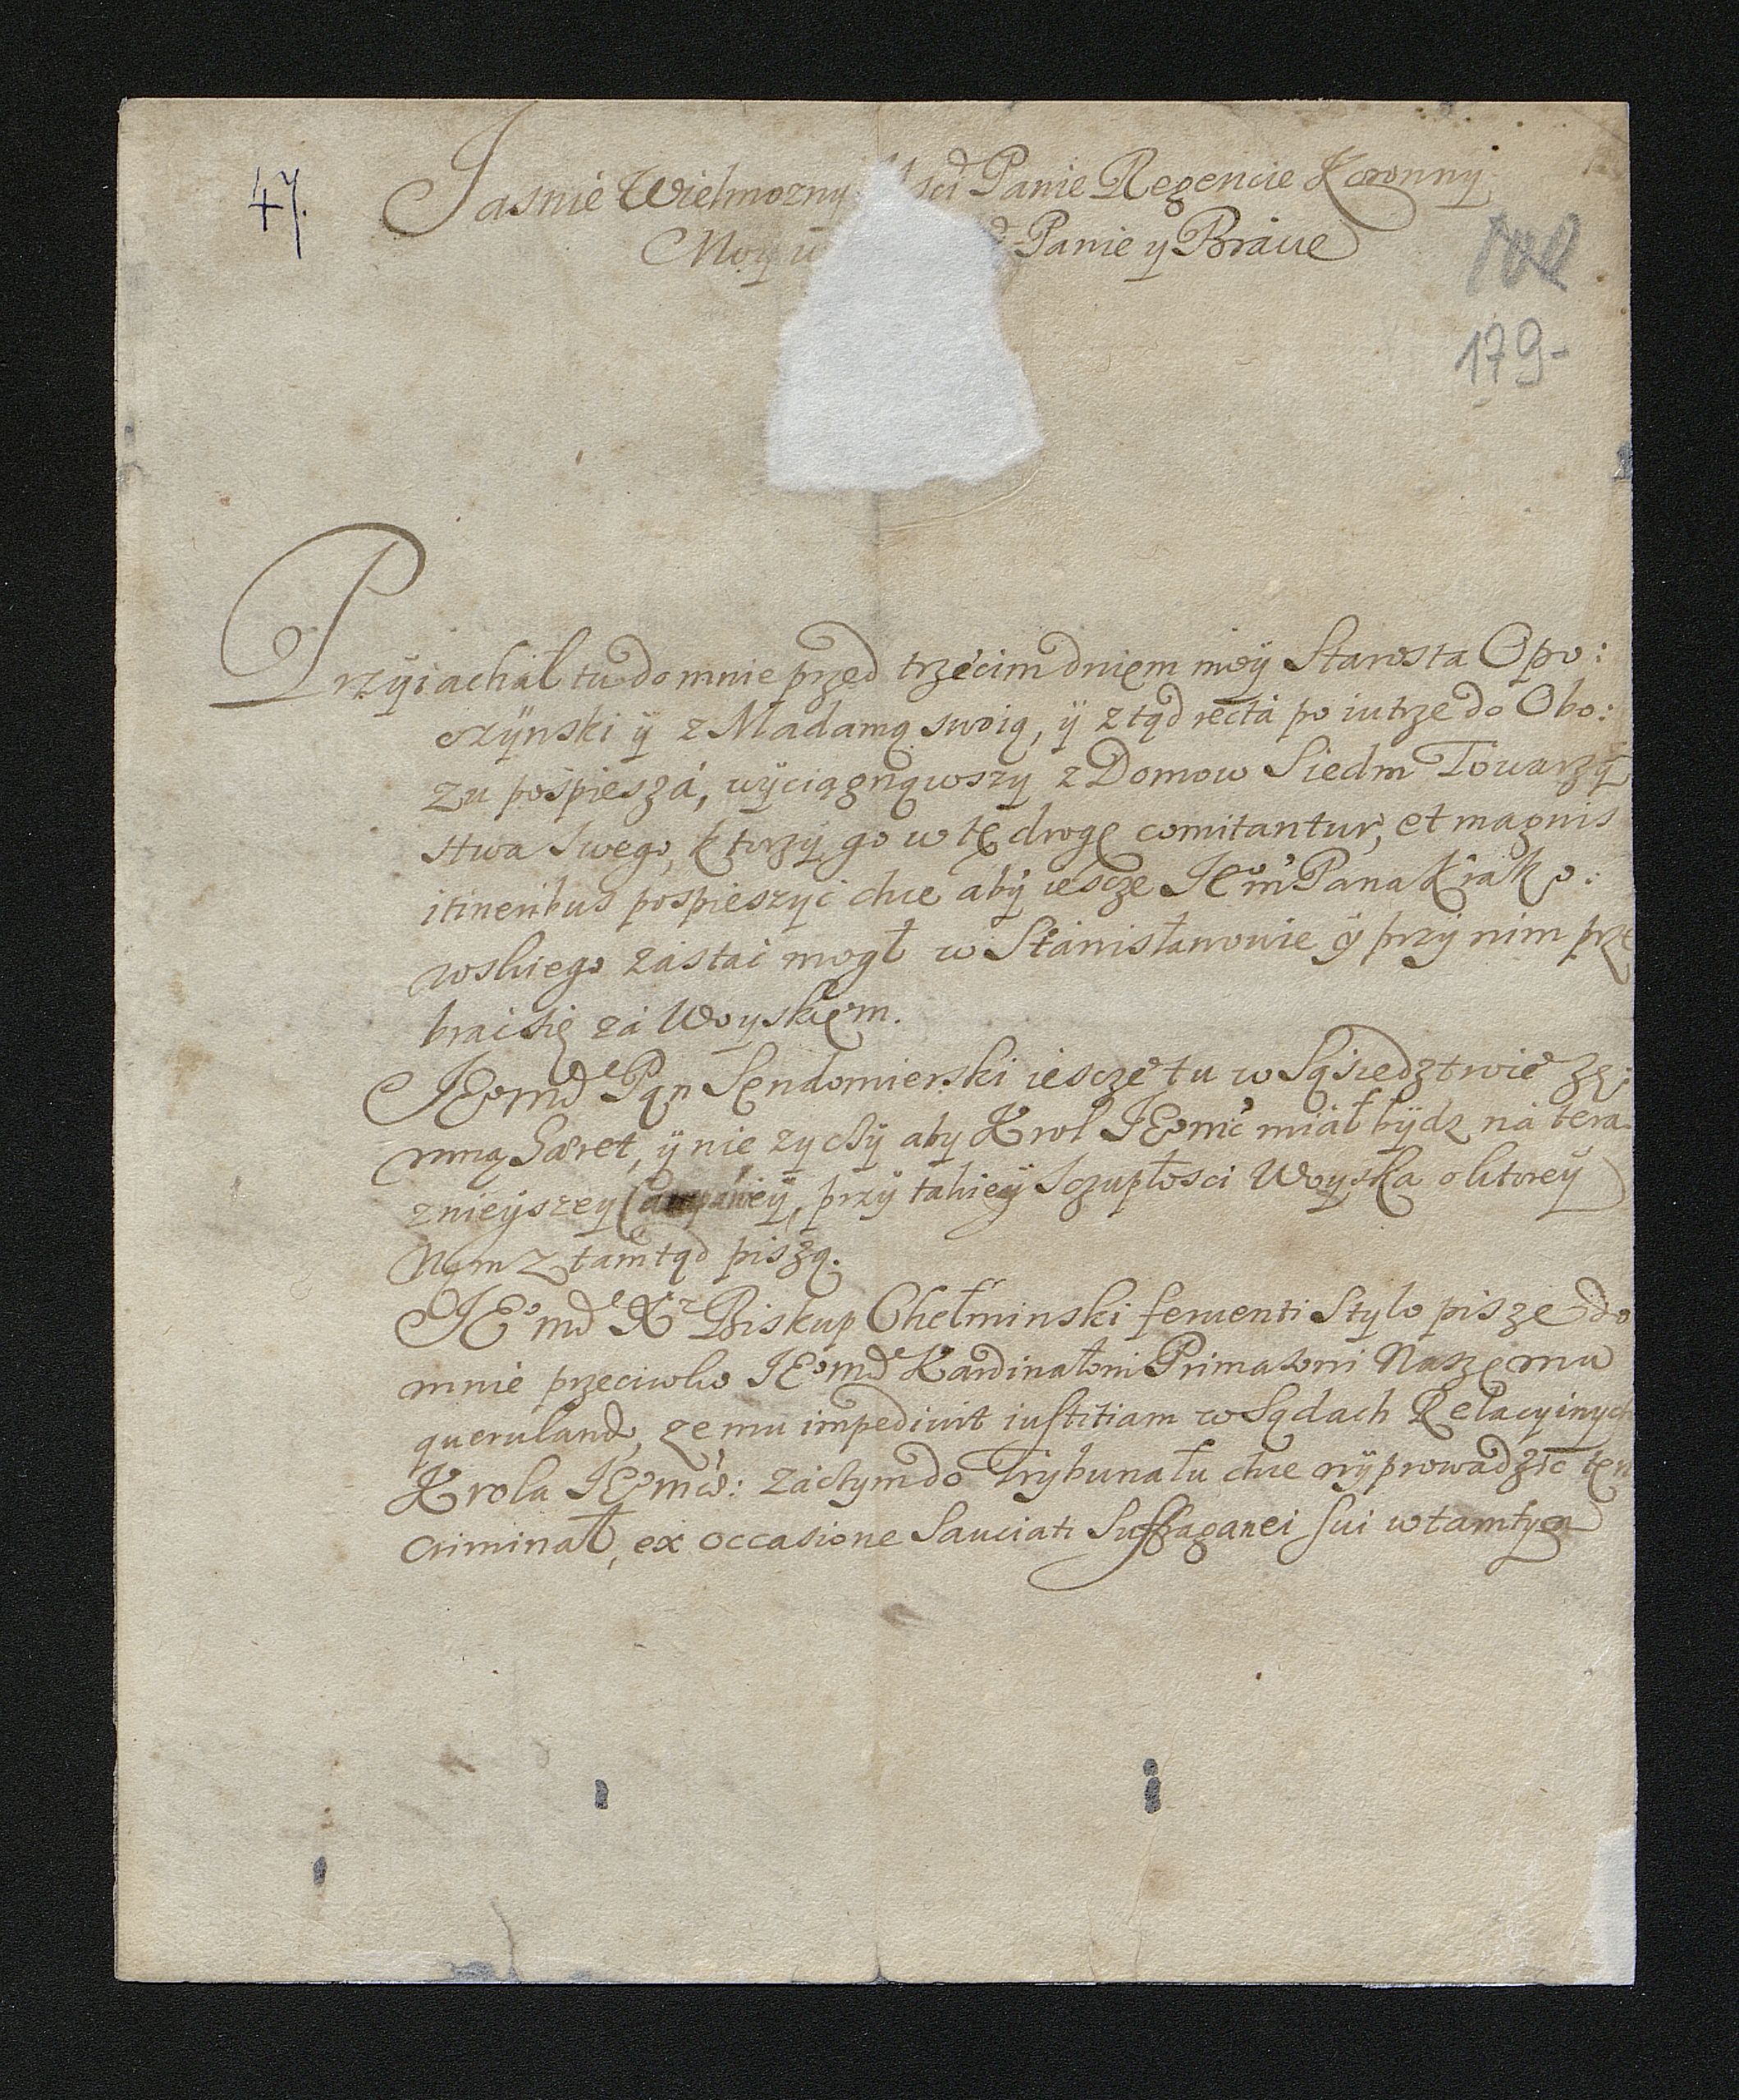 47.
Jasnie Wielmozny Mści Panie Regencie Koronny
Moy Panie y Bracie
179-
Przyiachał tu do mnie przed trzecim dniem moÿ Starosta Opo:
czÿnski ÿ z Madamą swoią, ÿ ztąd recta po iutrze do Obo:
zu pospiesza, wÿciągnąwszy z Domow Siedm Towarzÿ
stwa Swego, ktorzÿ go w tę drogę comitantur, et magnis
itineribus pospieszyc chce abÿ iescze JEom Pana Krako:
wskiego zastać mogł w Stanisławowie ÿ przy nim prze
brac się zá Woyskiem.
JEomć Pan Sendomierski iescze tu w Sąsiedztwie ze
mną haeret, ÿ nie zyczÿ aby Krol JEomć miał bÿdz ná tera
znieÿszey Campaniey, przÿ takieÿ Sczupłosci Woyska o ktoreÿ
Nam ztamtąd piszą.
JEomć X Biskup Chełminski feruenti Stylo pisze do
mnie przeciwko JEomć Kardinałowi Primasowi Naszemu
querulando, ze mu impediuit iustitiam w Sądach Relacyinych
Krola JEomci: zaczym do Trybunału chce wÿprowadzic ten
Criminał, ex occasione Sauciati Suffraganei sui w tamtym